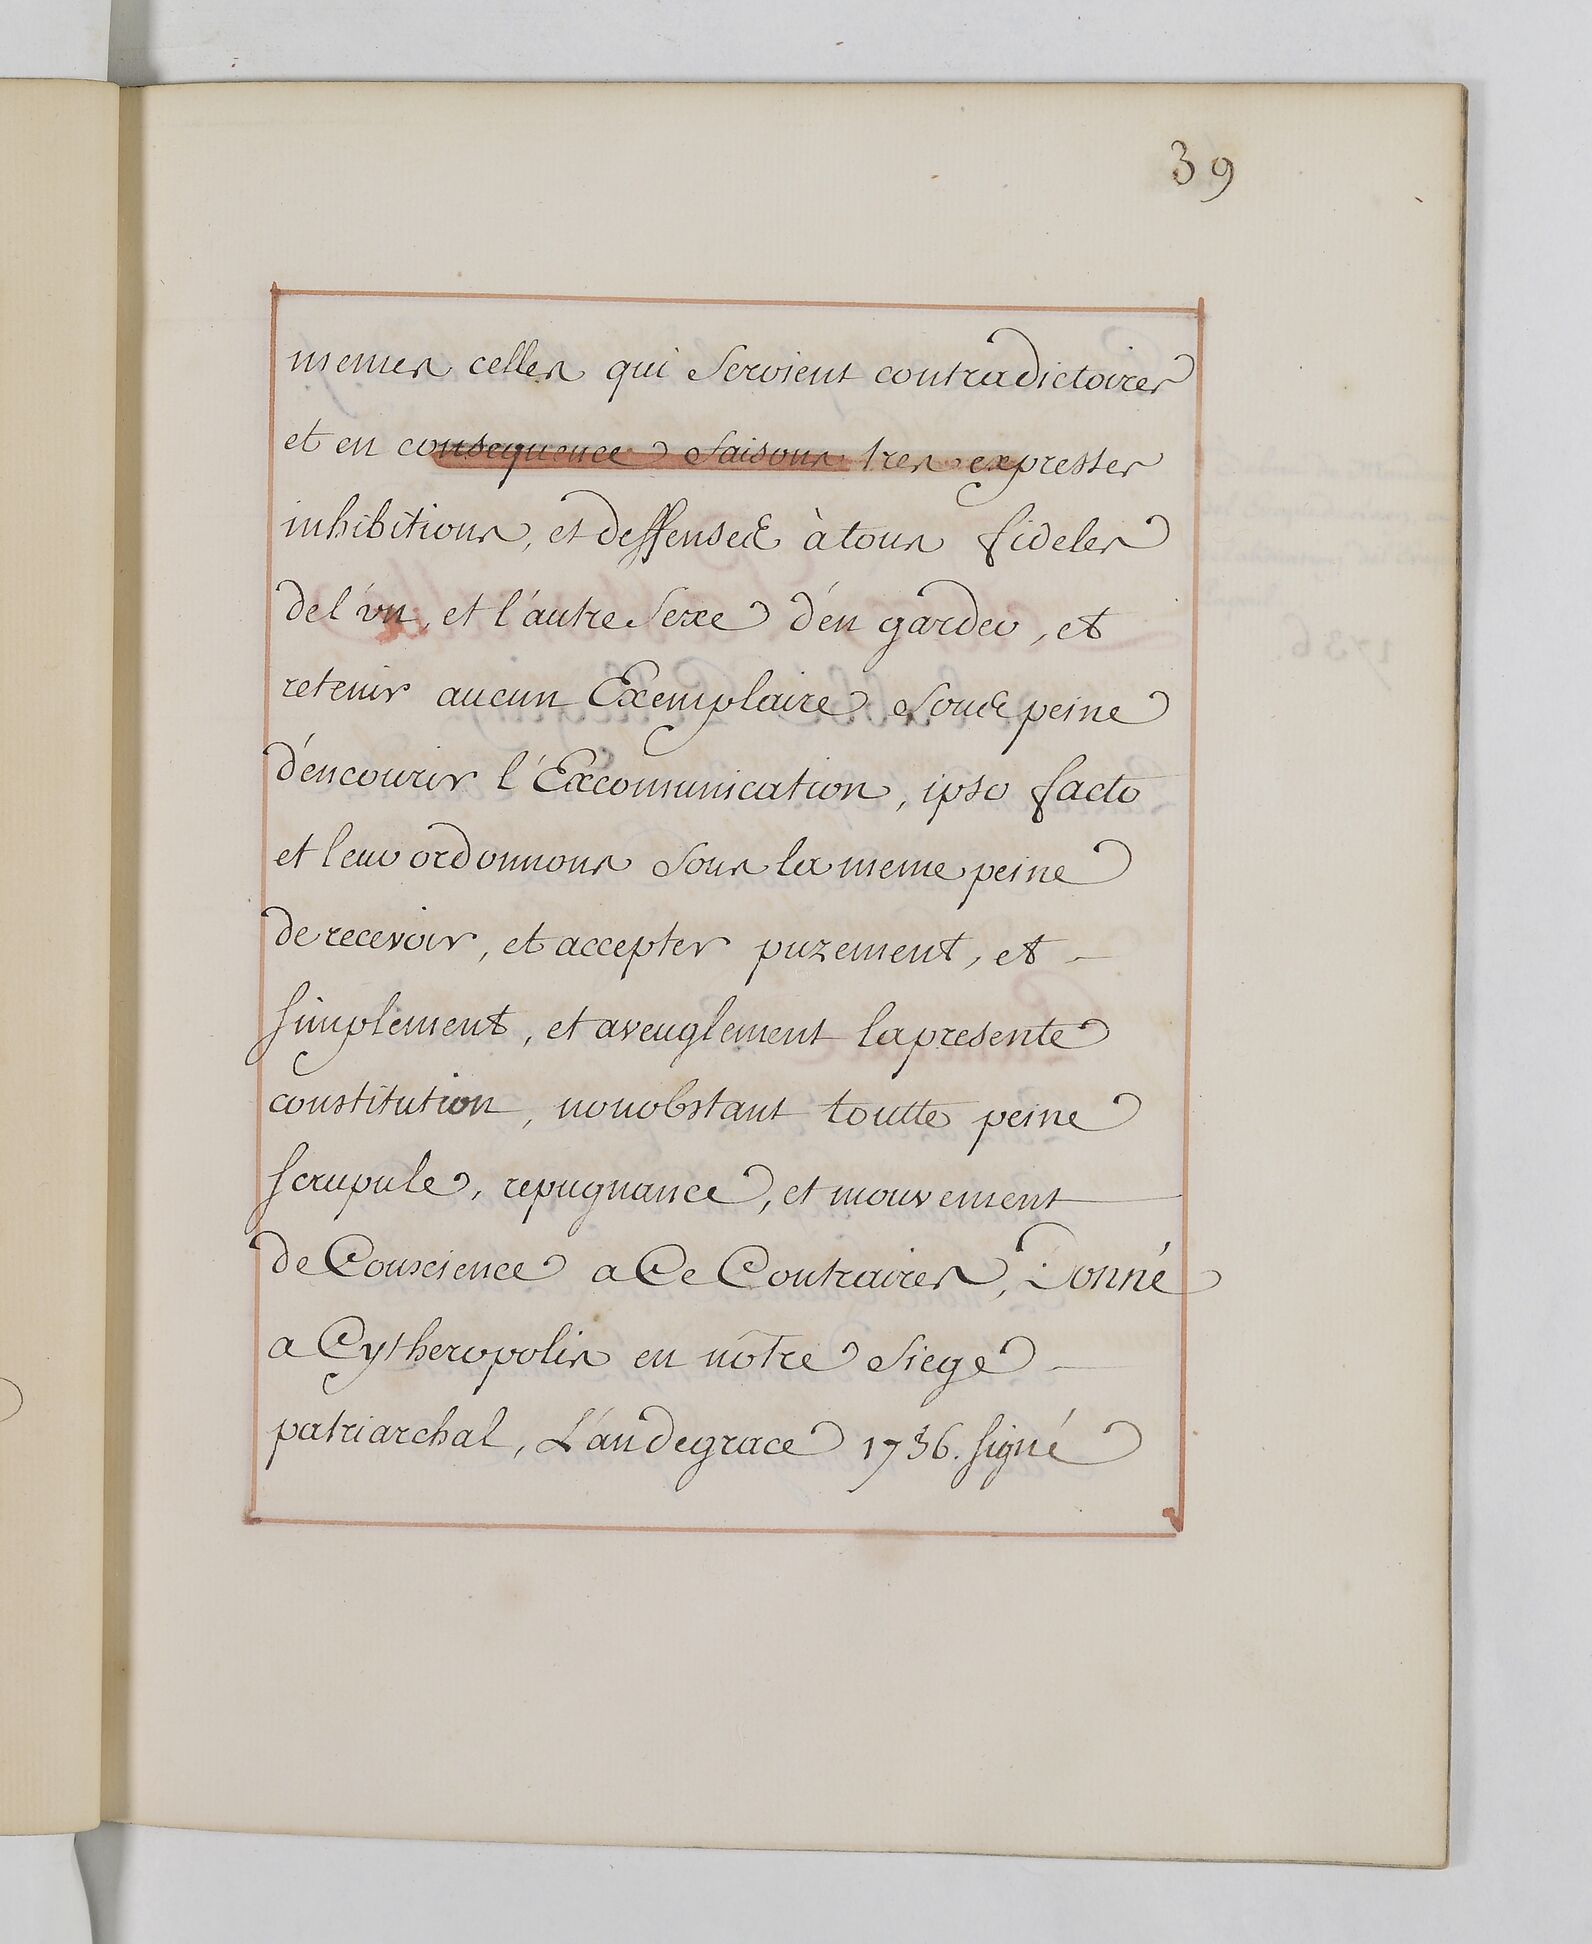 39
memes celles qui seroient contradictoires
et en consequence faisons tres expresses
inhibitions, et deffenses à tous fideles
de l'vn, et l'autre sexe d'én garder, et
retenir aucun Exemplaire sous peine
d'éncourir l'Excomunication, ipso facto
et leur ordonnons sous la meme peine
de recevoir, et accepter purement, et
simplement, et aveuglement la presente
constitution, nonobstant toutte peine
scrupule, repugnance, et mouvement
de Conscience a Ce Contraires, Donné
a Cytheropolis en nôtre siege
patriarchal, L'an de grace 1736. signé